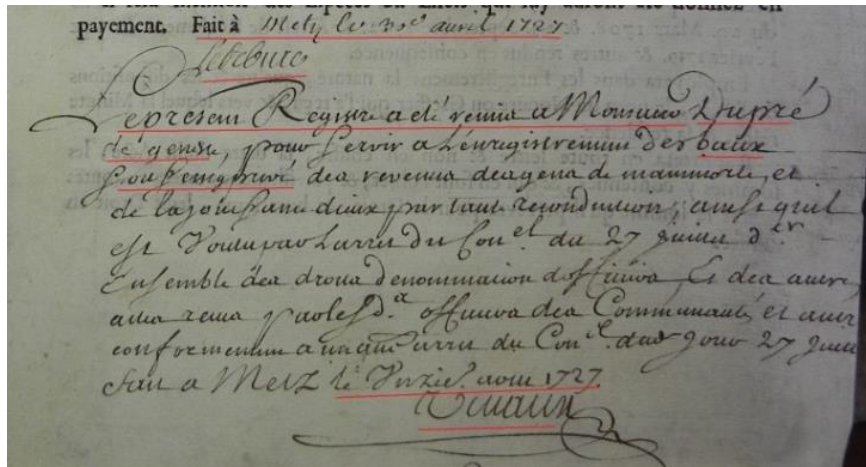 payement. Fait à Metz le 30e avril 1727
Lefebure
Le present Registre a été remis a Monsieur Dupré
de genest, pour servir a L'enregistrement des baux
sous seing privé des revenus des gens de mainmorte, et
de la jouissance d'iceux par taute reconduction, ainsi qu'il
est Voulu par L'arrest du Con.el du 27 d.er
Ensemble des droits de nomination d'officiers, Et des autres
actes par les d.s officiers des Communautés, et autres
conformement a un arrest du Con.el dud jour 27
fait a Metz le Unzie. aout 1727.